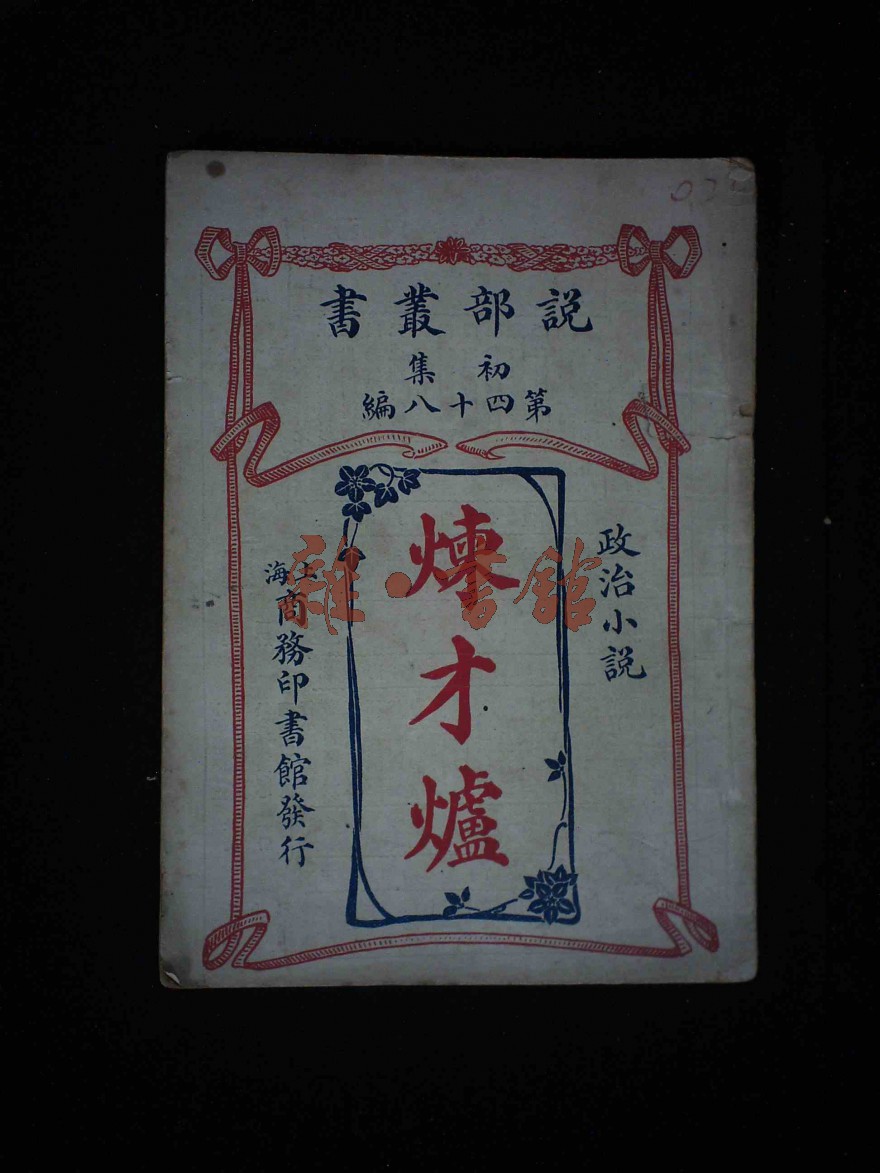 說部叢書
初集
第四十八編
政治小說
煉才爐
上海商務印書館發行
雜·書館